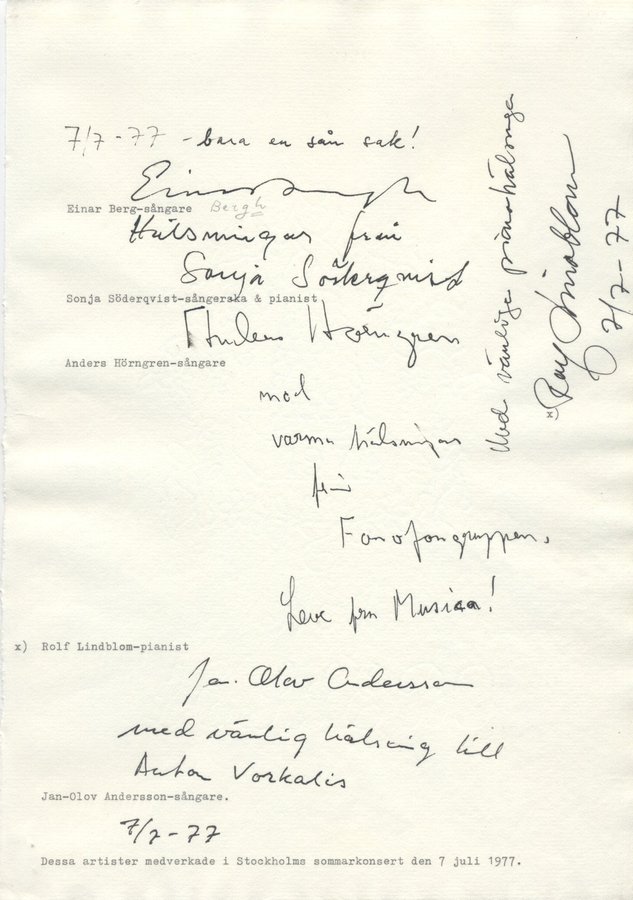 7/7-77 - bara en sån sak!
Einar Bergh
Einar Berg-sångare Bergh
Hälsningar från
Sonja Söderqvist
Sonja Söderqvist-sångerska & pianist
Anders Hörngren
Anders Hörngren-sångare
med
varma hälsningar
från
Fonofongruppen.
Leve fru Musica!
x) Rolf Lindblom-pianist
Jan-Olov Andersson
med vänlig hälsning till
Anton Vorkalis
Jan-Olov Andersson-sångare.
7/7-77
Dessa artister medverkade i Stockholms sommarkonsert den 7 juli 1977.
Med vänliga
x) Lindblom
7/7-77